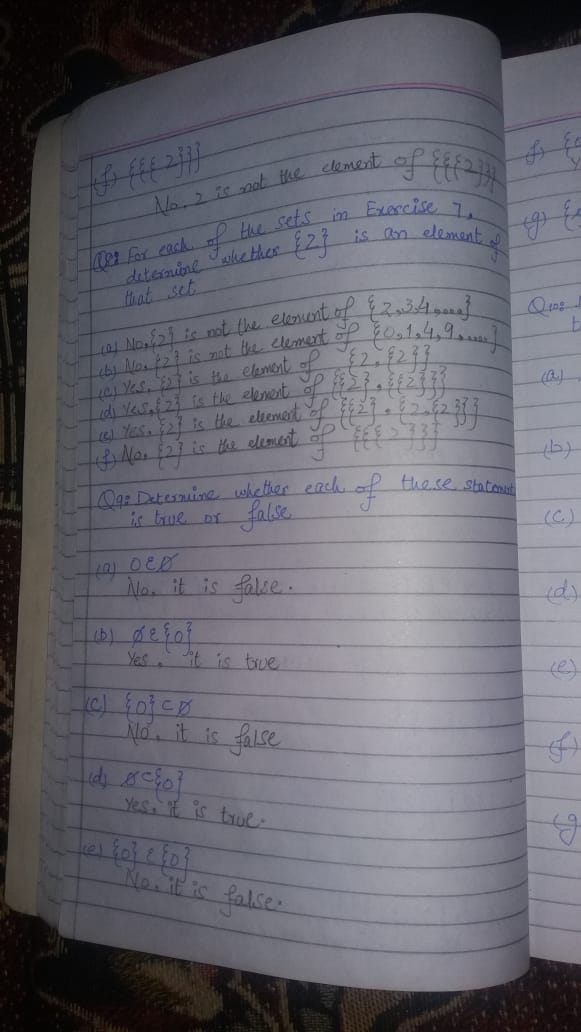 (f) {{{2}}}
No. 2 is not the element of {{{2}}}
Q8: For each of the sets in Exercise 7,
determine whether {2} is an element of
that set
(a) No, {2} is not the element of {2,3,4,....}
(b) No. {2} is not the element of {0,1,4,9,....}
(c) Yes. {2} is the element of {2,{2}}
(d) Yes, {2} is the element of {{2},{{2}}}
(e) Yes. {2} is the element of {{2},{2,{2}}}
(f) No. {2} is the element of {{{2}}}
Q9: Determine whether each of these statement
is true or false
(a) 0∈∅
No. it is false.
(b) ∅∈{0}
Yes. it is true
(c) {0}⊂∅
No. it is false
(d) ∅⊂{0}
Yes. it is true.
(e) {0}∈{0}
No. it is false.
(f)
(g)
(a)
(b)
(c)
(d)
(e)
(f)
(g